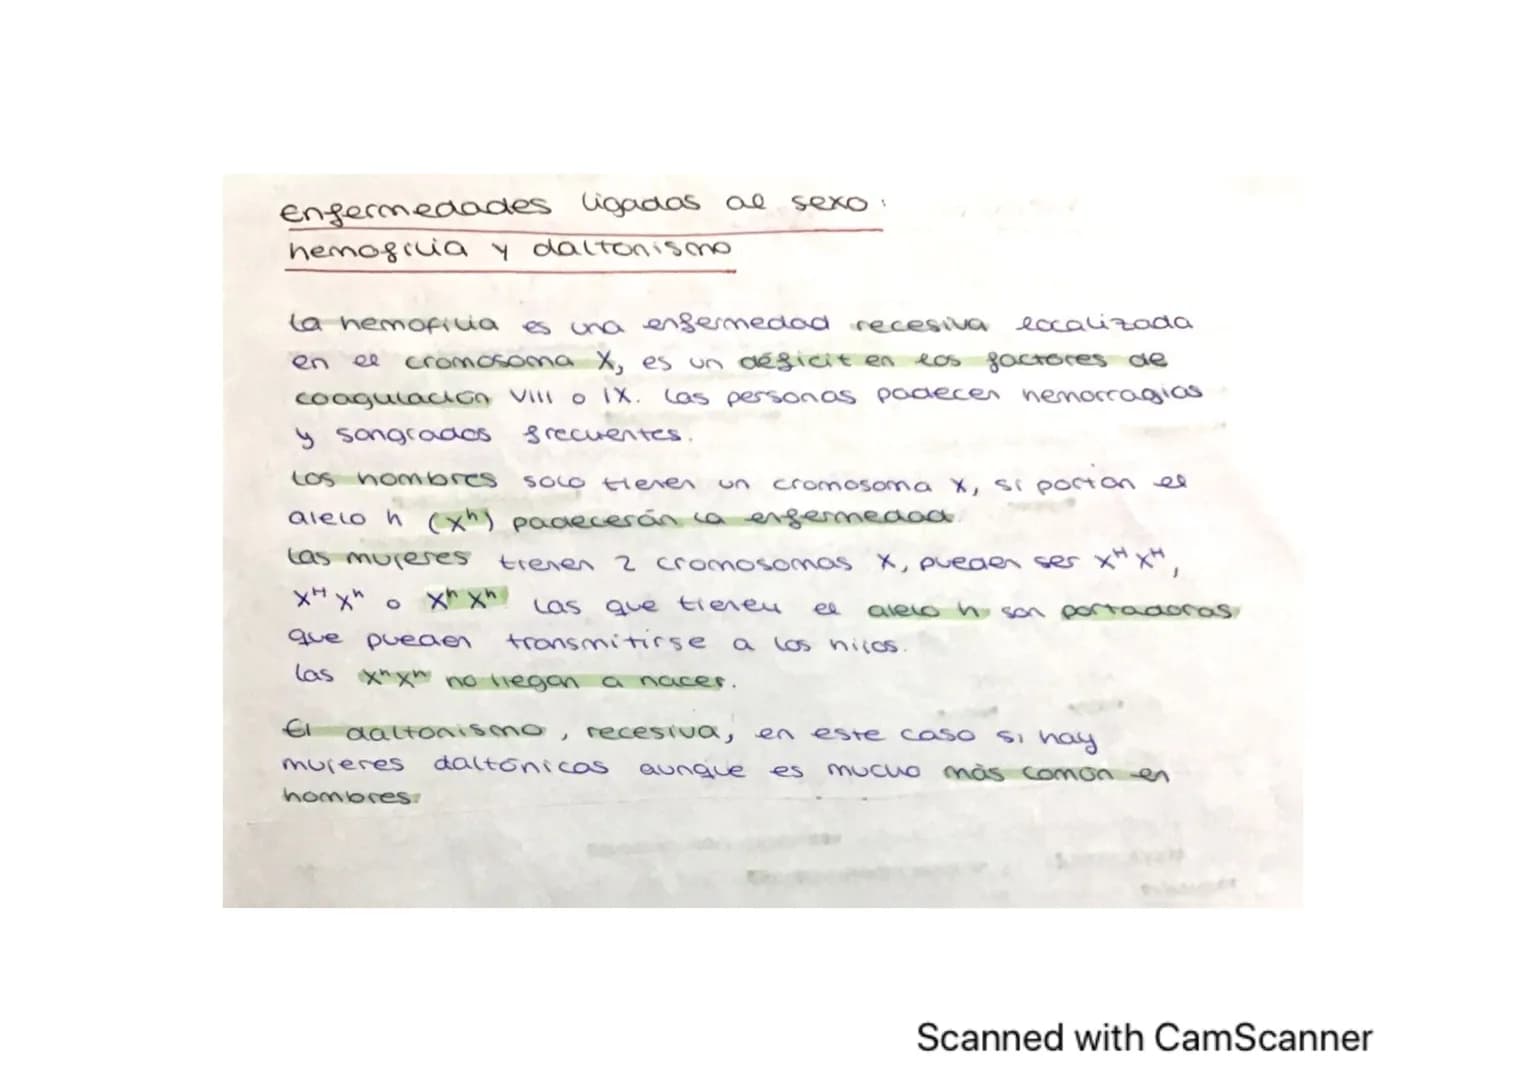 enfermedades ligadas al sexo:
hemofilia y daltonismo
La hemofilia es una enfermedad recesiva localizada
en el cromosoma X, es un déficit en los factores de
coagulación VIII o IX. Las personas padecen hemorragias
y sangrados frecuentes.
Los hombres solo tienen un cromosoma X, si portan el
alelo h (Xʰ) padecerán la enfermedad.
Las mujeres tienen 2 cromosomas X, pueden ser Xᴴ Xᴴ,
Xᴴ Xʰ o Xʰ Xʰ Las que tienen el alelo h son portadoras
que pueden transmitirse a los hijos.
Las XʰXʰ no llegan a nacer.
El daltonismo, recesiva, en este caso si hay
mujeres daltónicas aunque es mucho más común en
hombres.
Scanned with CamScanner